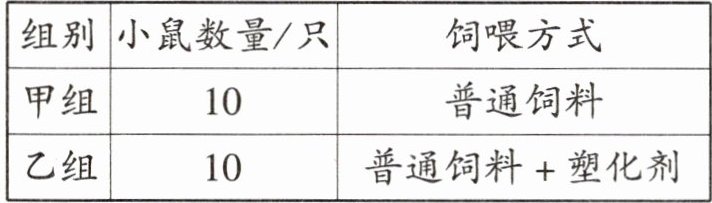 组别 小鼠数量/只 饲喂方式
甲组 10 普通饲料
乙组 10 普通饲料+塑化剂